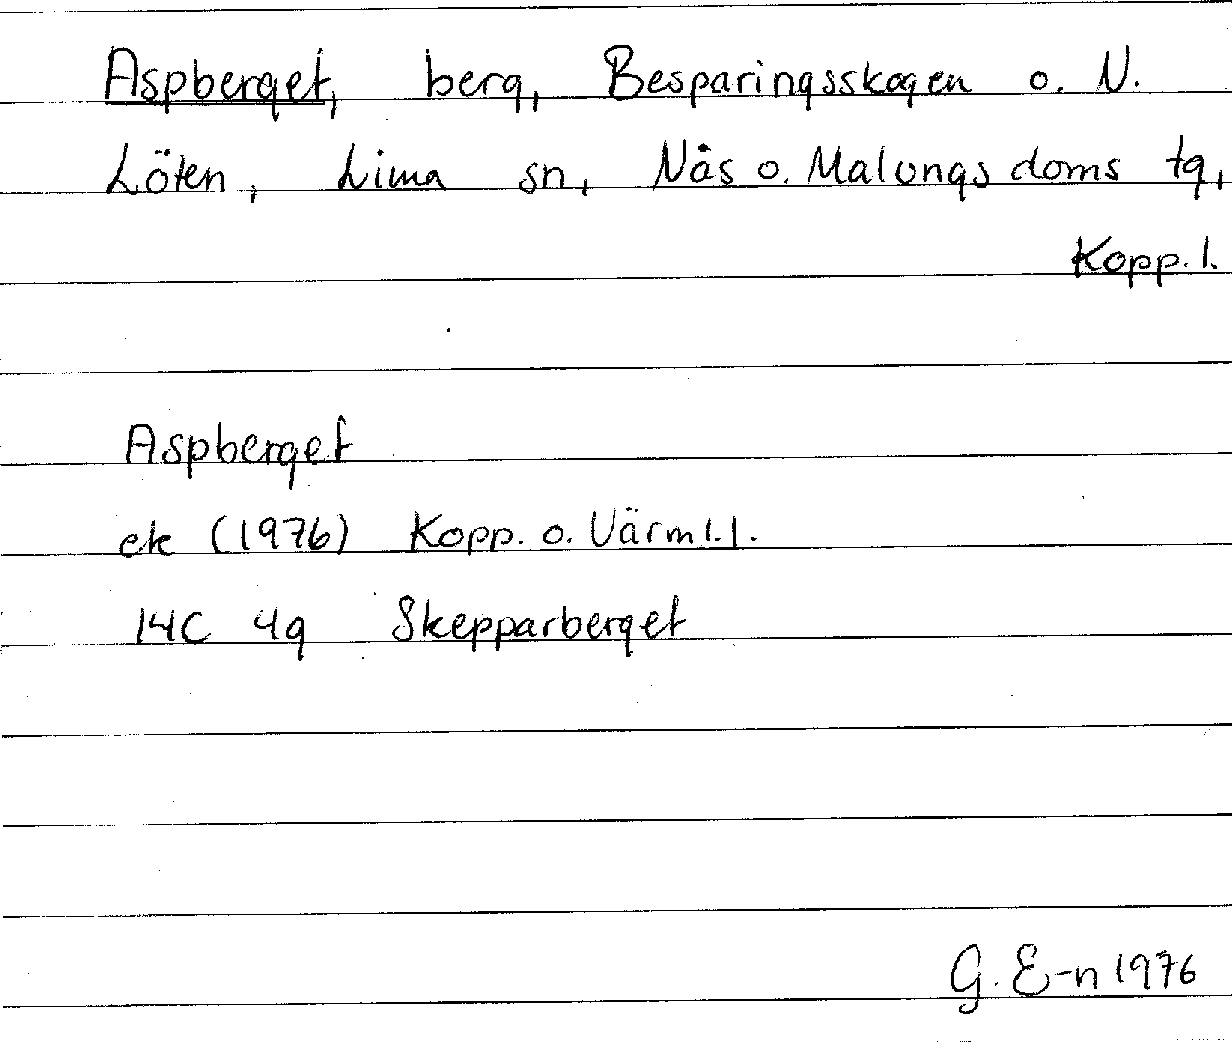 Aspberget, berg, Besparingsskogen o. N.
Löten, Lima sn, Nås o. Malungs doms tg,
Kopp. l.
Aspberget
ek (1976) Kopp. o. Värml. l.
14C 4g Skepparberget
G. E-n 1976